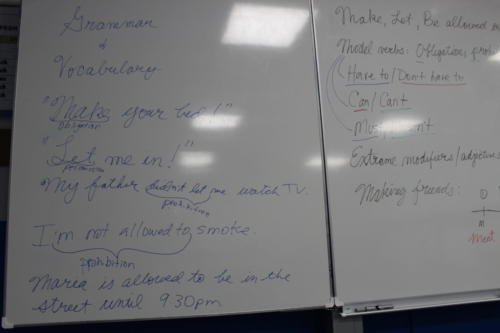 Grammar
&
Vocabulary
"Make your bed!"
obligation
"Let me in!"
permission
My father didn't let me watch TV.
prohibition
I'm not allowed to smoke.
prohibition
Maria is allowed to be in the
street until 930pm
Make, Let, Be allowed
Model verbs: Obligation,
Have to / Don't have to
Can / Can't
Extreme modifiers / adjectives
Making friends:
Meet